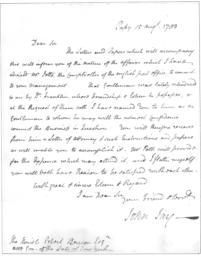 Passy 15 Augt. 1783
Dear Sir
The Letters and Papers which will accompany
this will inform you of the nature of the affair which I have
advised Mr. Potts, the Comptroller of the english post office to commit
to your management. That Gentleman was lately introduced
to me by Dr. Franklin whose Friendship & Esteem he possesses, &
at the Request of them both I have named you to him as a
Gentleman to whom he may with the utmost confidence
commit the Business in Question. You will therefore receive
from him a Letter of Attorney & such Instructions and papers
as will enable you to accomplish it. Mr. Potts will provide
for the Expence which may attend it, and I flatter myself
you will both have Reason to be satisfied with each other
with great & sincere Esteem & Regard
I am Dear Sir
your Friend & Servt.
John Jay
The Honble. Egbert Benson Esqr.
of the State of New York